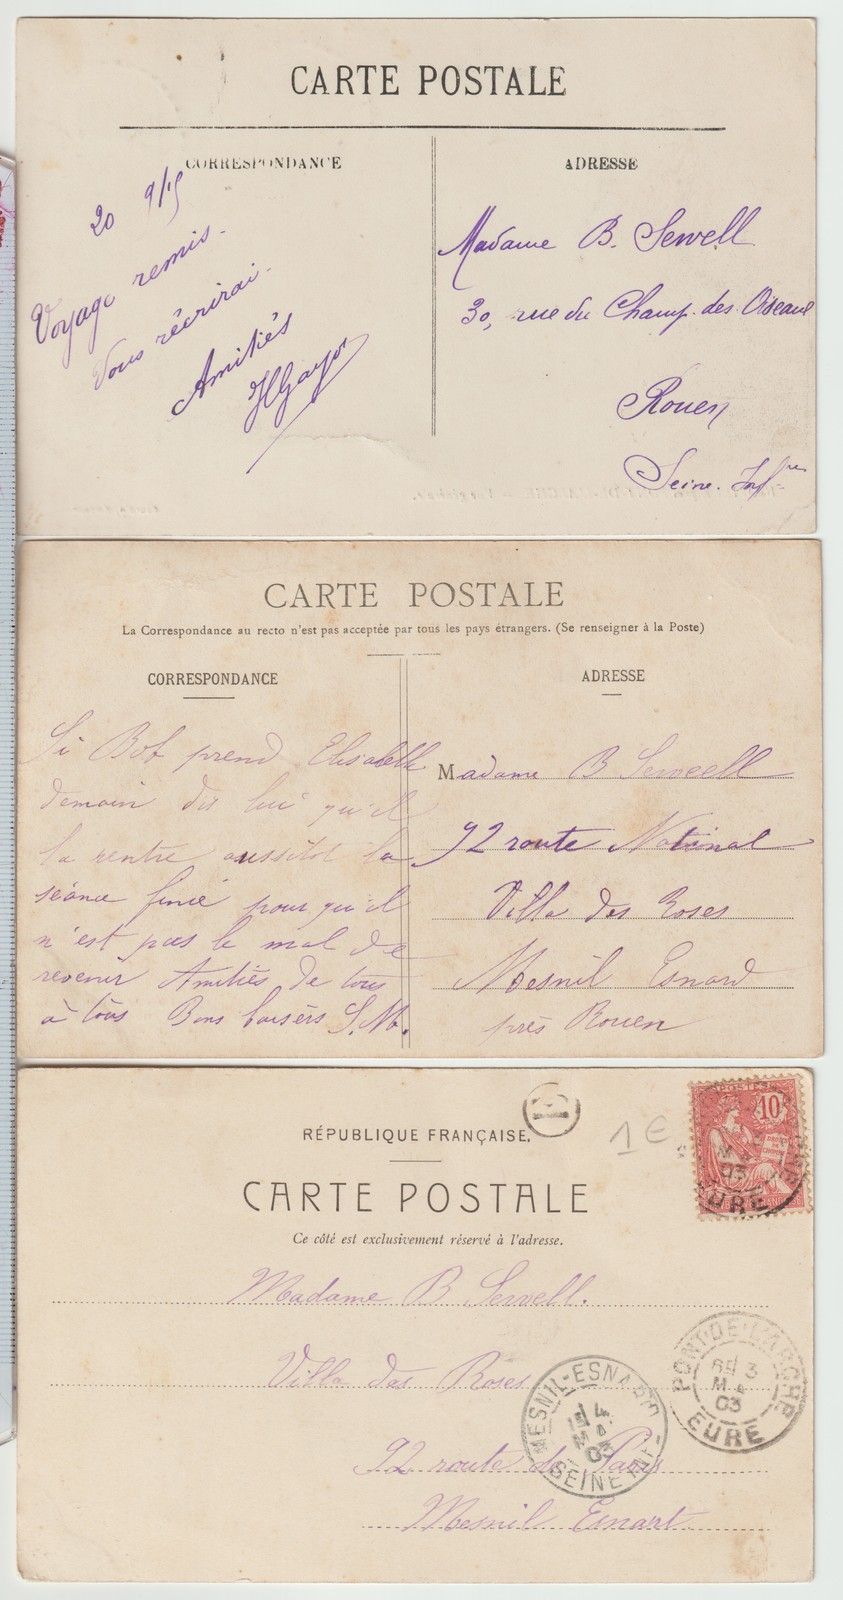 CARTE POSTALE
CORRESPONDANCE
20 9/15
Voyage remis.
Vous récrirai.
Amitiés
HGayor
ADRESSE
Madame B. Sewell
30, rue du Champ. des. Oiseaux
Rouen
Seine. Infre
CARTE POSTALE
La Correspondance au recto n'est pas acceptée par tous les pays étrangers. (Se renseigner à la Poste)
CORRESPONDANCE
Si Bob prend Elisabelle
demain dis lui qu'il
la rentre aussitot la
séance finie pour qu'il
n'est pas le mal de
revenir Amitiés de tous
à tous Bons baisers S.M.
ADRESSE
Madame B Seweell
92 route National
Villa des Roses
Mesnil Esnard
près Rouen
RÉPUBLIQUE FRANÇAISE.
1 €
POSTES
10
03
EURE
CARTE POSTALE
Ce côté est exclusivement réservé à l'adresse.
Madame B Sewell.
Villa des Roses
92 route de Paris
Mesnil Esnart
MESNIL-ESNARD
4
03
SEINE INF
PONT-DE-L'ARCHE
3
03
EURE